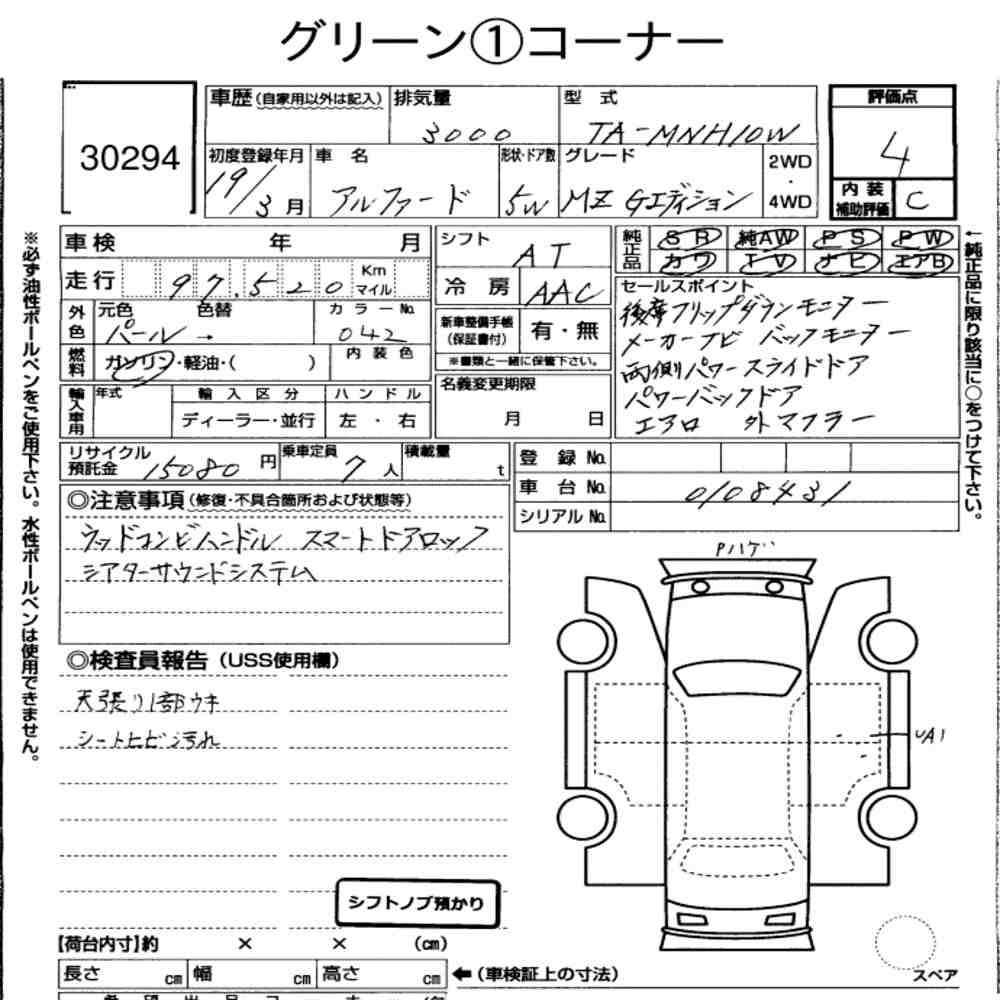 グリーン①コーナー
30294
車歴(自家用以外は記入) 排気量 3000
型式 TA-MNH10W
評価点 4
内装補助評価 C
初度登録年月 19/3月
車名 アルファード
形状・ドア数 5W
グレード MZ Gエディション
2WD・4WD
※必ず油性ボールペンをご使用下さい。水性ボールペンは使用できません。
車検 年 月
走行 97.520 Km マイル
外色 元色 パール → 色替 カラーNo. 042
燃料 ガソリン・軽油・( ) 内装色
輸入車用 年式 輸入区分 ディーラー・並行 ハンドル 左・右
シフト AT
冷房 AAC
新車整備手帳(保証書付) 有・無
※書類と一緒に保管下さい。
名義変更期限
月 日
純正品 SR 純AW PS PW
カワ TV ナビ エアB
←純正品に限り該当に○をつけて下さい。
セールスポイント
後席フリップダウンモニター
メーカーナビ バックモニター
両側パワースライドドア
パワーバックドア
エアロ 外マフラー
リサイクル預託金 15080円 乗車定員 7人 積載量 t
登録No.
車台No. 0108431
シリアルNo.
◎注意事項(修復・不具合箇所および状態等)
ウッドコンビハンドル スマートドアロック
シアターサウンドシステム
◎検査員報告(USS使用欄)
天張り1部ウキ
シートヒビ 汚れ
Pハゲ
UA1
シフトノブ預かり
【荷台内寸】約 × × (cm)
長さ cm 幅 cm 高さ cm
←(車検証上の寸法)
スペア